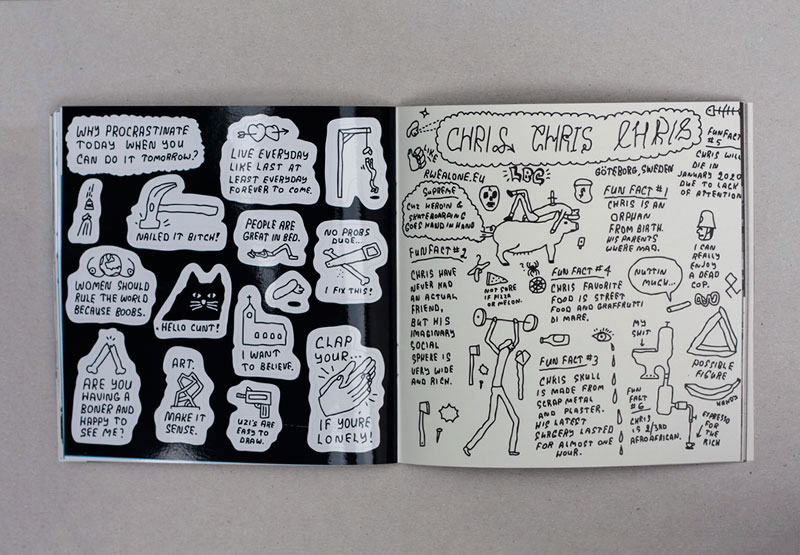 WHY PROCRASTINATE
TODAY WHEN YOU
CAN DO IT TOMORROW?
LIVE EVERYDAY
LIKE LAST AT
LEAST EVERYDAY
FOREVER TO COME.
NAILED IT BITCH!
PEOPLE ARE
GREAT IN BED.
NO PROBS
DUDE...
I FIX THIS!
WOMEN SHOULD
RULE THE WORLD
BECAUSE BOOBS.
HELLO CUNT!
I WANT
TO BELIEVE.
CLAP
YOUR...
IF YOU'RE
LONELY!
ARE YOU
HAVING A
BONER AND
HAPPY TO
SEE ME?
ART.
MAKE IT
SENSE.
UZI'S ARE
EASY TO
DRAW.
CHRIS CHRIS CHRIS
LIKE
RWEALONE.EU
LBC
GÖTEBORG, SWEDEN
SUPREME
CUZ HEROIN &
SKATEBOARDING
GOES HAND IN HAND
FUN FACT #1
CHRIS IS AN
ORPHAN
FROM BIRTH.
HIS PARENTS
WHERE MAD.
FUN FACT
#5
CHRIS WILL
DIE IN
JANUARY 2020
DUE TO LACK
OF ATTENTION
I CAN
REALLY
ENJOY
A DEAD
COP.
FUN FACT #2
CHRIS HAVE
NEVER HAD
AN ACTUAL
FRIEND,
BUT HIS
IMAGINARY
SOCIAL
SPHERE IS
VERY WIDE
AND RICH.
NOT SURE
IF PIZZA
OR MELON.
FUN FACT #4
CHRIS FAVORITE
FOOD IS STREET
FOOD AND GRAFFRUTTI
DI MARE.
NUTTIN
MUCH...
FUN FACT #3
CHRIS SKULL
IS MADE FROM
SCRAP METAL
AND PLASTER.
HIS LATEST
SURGERY LASTED
FOR ALMOST ONE
HOUR.
MY
SHIT
FUN
FACT
#6
CHRIS
IS 2/3RD
AFROAFRICAN.
POSSIBLE
FIGURE
ESPRESSO
FOR THE
RICH